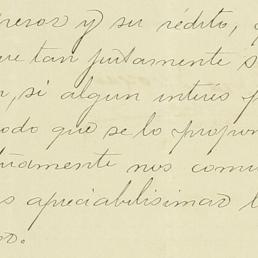 resor y su rédito, y
ue tan justamente s
, si algun interés p
odo que se lo propon
damente nos comu
s apreciabilisimas l
o.